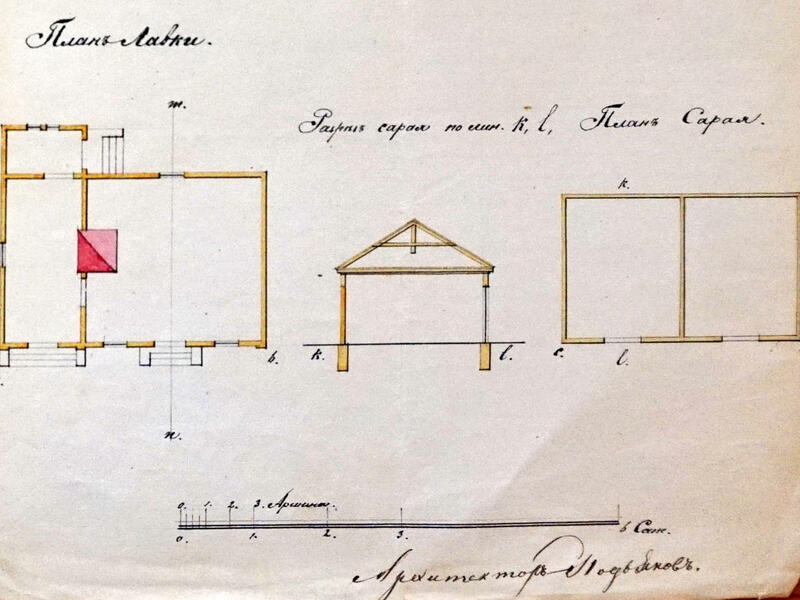 Планъ Лавки.
m.
Разрѣзъ сарая по лин. k, l, Планъ Сарая.
k.
b.
k.
l.
c.
l.
n.
0. 1. 2. 3. Аршинъ.
0. 1. 2. 3. 6 Саж.
Архитекторъ